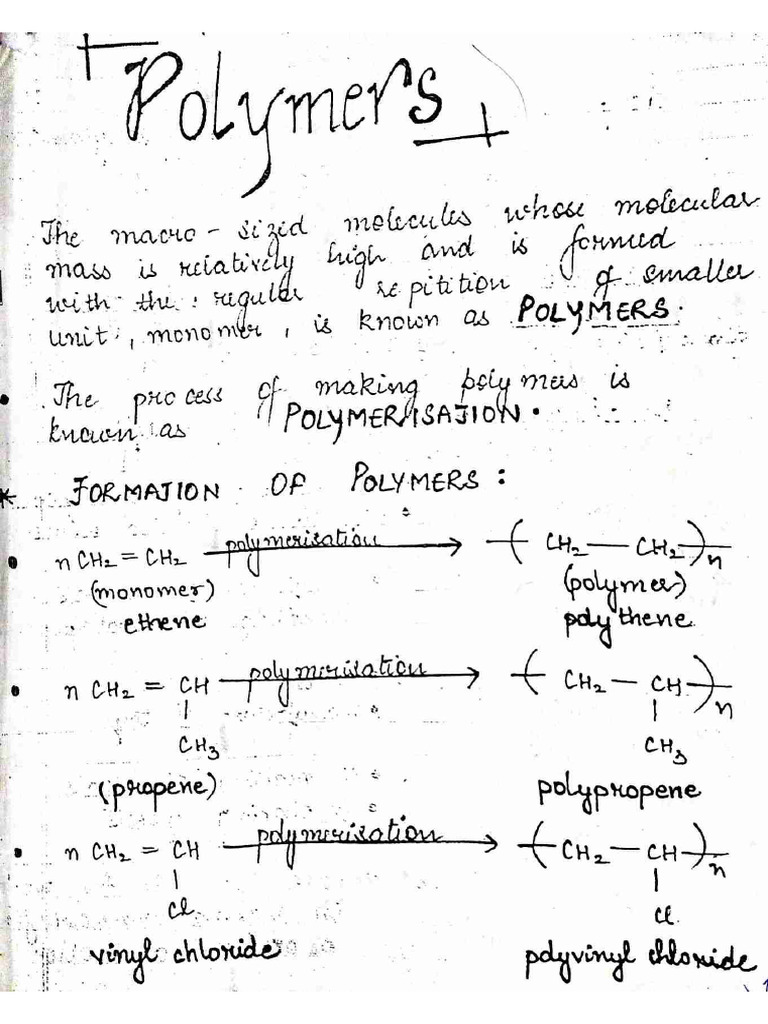 Polymers
The macro-sized molecules whose molecular
mass is relatively high and is formed
with the regular repitition of smaller
unit, monomer, is known as POLYMERS.
The process of making polymers is
known as POLYMERISATION.
* FORMATION OF POLYMERS:
• n CH₂ = CH₂ polymerisation → -( CH₂ — CH₂ )-n
(monomer) (polymer)
ethene polythene
• n CH₂ = CH polymerisation → -( CH₂ — CH )-n
| |
CH₃ CH₃
(propene) polypropene
• n CH₂ = CH polymerisation → -( CH₂ — CH )-n
| |
Cl Cl
vinyl chloride polyvinyl chloride